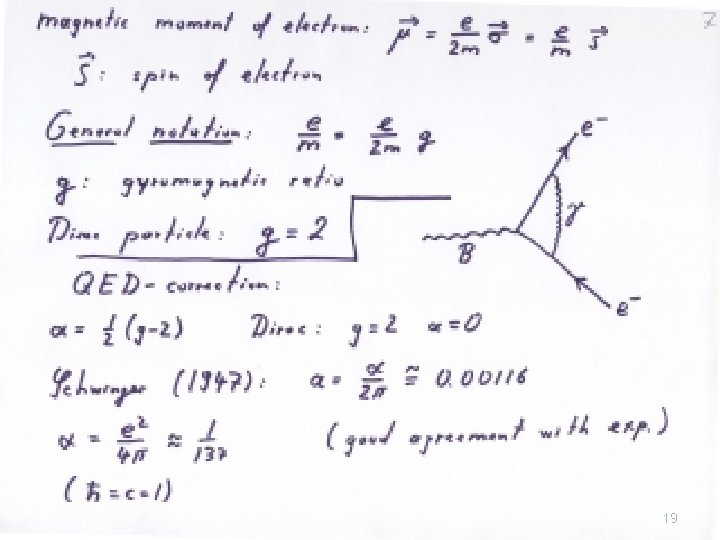 magnetic moment of electron: μ⃗ = e/2m σ⃗ = e/m s⃗
7
s⃗: spin of electron
General notation: e/m = e/2m g
e⁻
g: gyromagnetic ratio
γ
Dirac particle: g = 2
B
QED-correction:
e⁻
a = 1/2 (g-2) Dirac: g=2 a=0
Schwinger (1947): a = α/2π ≅ 0.00116
α = e²/4π ≈ 1/137 (good agreement with exp.)
(ħ = c = 1)
19